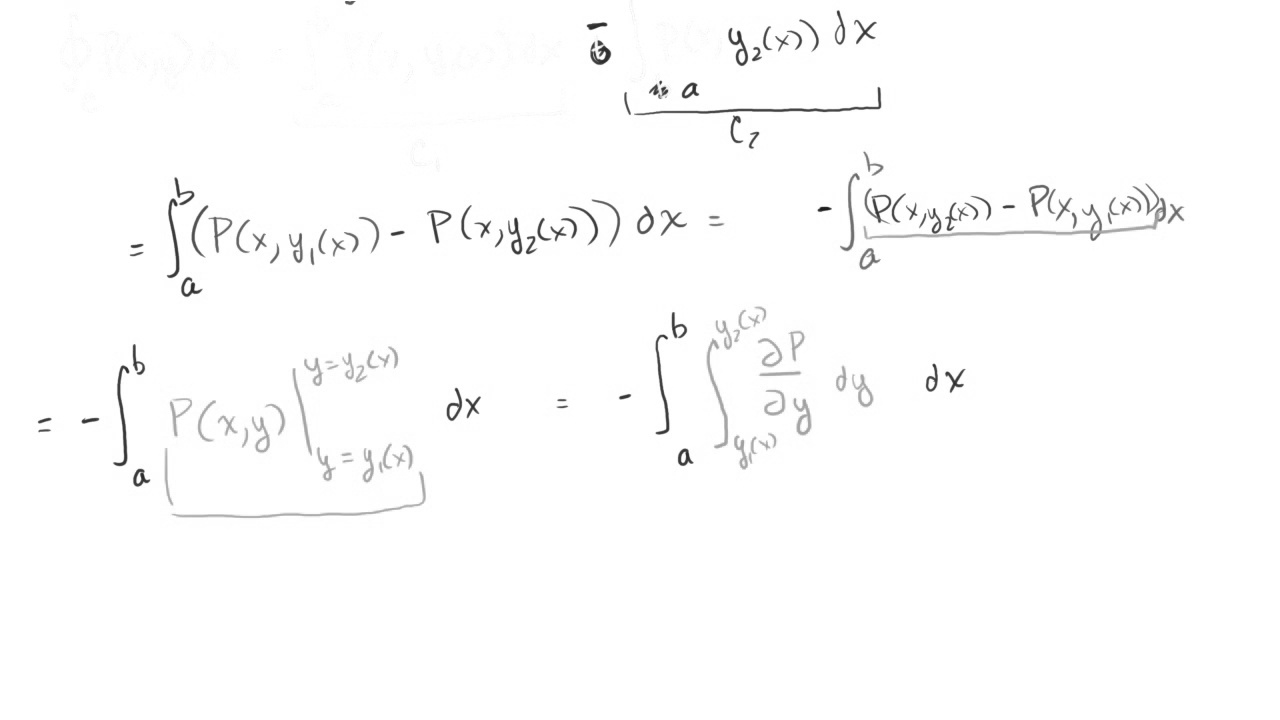 y₂(x)) dx
a
C₂
= ∫ₐᵇ (P(x, y₁(x)) - P(x, y₂(x))) dx = - ∫ₐᵇ (P(x, y₂(x)) - P(x, y₁(x))) dx
= - ∫ₐᵇ P(x,y) |_{y = y₁(x)}^{y = y₂(x)} dx = - ∫ₐᵇ ∫_{y₁(x)}^{y₂(x)} ∂P/∂y dy dx